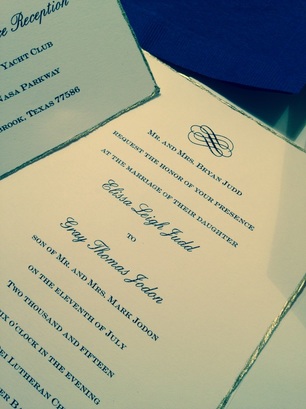 Reception
Yacht Club
Nasa Parkway
brook, Texas 77586
Mr. and Mrs. Bryan Judd
request the honor of your presence
at the marriage of their daughter
Elissa Leigh Judd
to
Gray Thomas Jodon
son of Mr. and Mrs. Mark Jodon
on the eleventh of July
Two thousand and fifteen
six o'clock in the evening
ei Lutheran Ch
er Ba